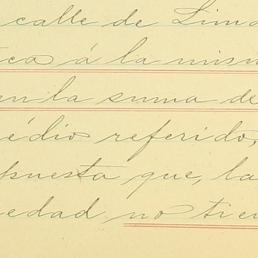 calle de Lima
ca á la mism
en la suma de
édio referido,
puesta que, la
edad no tien